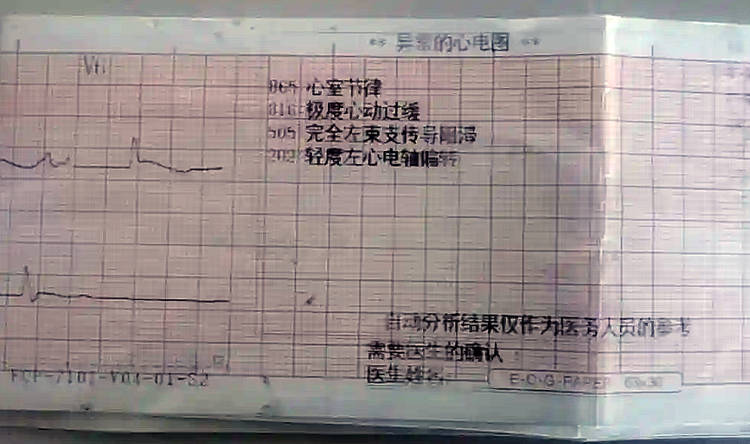 ** 异常的心电图 **
V6
865 心室节律
816 极度心动过缓
505 完全左束支传导阻滞
202 轻度左心电轴偏转
自动分析结果仅作为医务人员的参考
需要医生的确认
医生姓名:
ECP-7101-V04-01-S2
E-C-G-PAPER